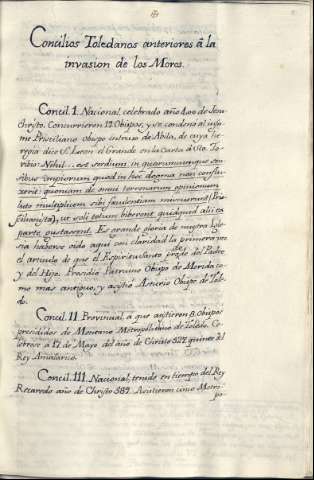 Concilios Toledanos anteriores á la
invasion de los Moros.
Concil. I. Nacional, celebrado año 400 de Jesu
Christo. Concurrieron 19 Obispos, y se condenó al infa-
me Prisciliano Obispo intruso de Abila, de cuya he-
regia dice S. Leon el Grande en la Carta á Sto. To-
ribio: Nihil... est sordium in quorumcumque sen-
sibus impiorum quod in hoc dogma non conflu-
xerit: quoniam de omni terrenarum opinionum
luto multiplicem sibi faeculentiam miscuerunt (Pris-
cilianistae), ut soli totum biberent, quidquid alii ex
parte gustarent. Es grande gloria de nuestra Igle-
sia haberse oido aqui con claridad la primera vez
el articulo de que el Espiritu Santo procede del Padre
y del Hijo. Presidió Patruino Obispo de Merida co-
mo mas antiguo, y asistió Asturio Obispo de Tole-
do.
Concil. II. Provincial, a que asistieron 8 Obispos
presididos de Montano Metropolitano de Toledo. Ce-
lebrose à 17 de Mayo del año de Christo 527 quinto del
Rey Amalarico.
Concil. III. Nacional, tenido en tiempo del Rey
Recaredo año de Christo 589. Asistieron cinco Metro-
po-